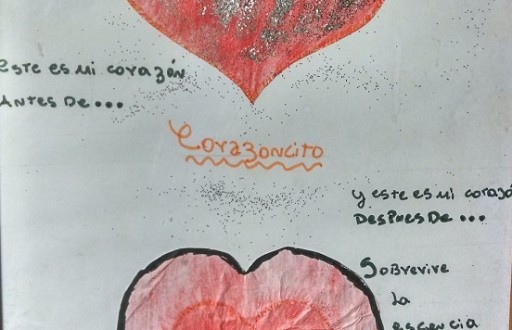 este es mi corazón
ANTES DE...
Corazoncito
y este es mi corazó
DESPUES DE...
Sobrevive
la
escencia